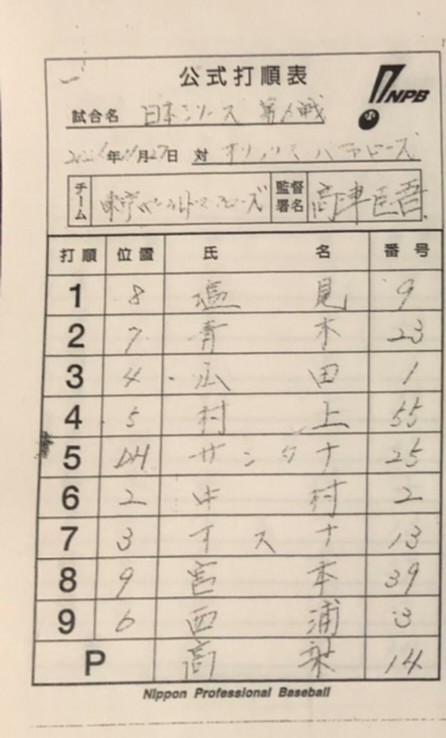 公式打順表
NPB
試合名 日本シリーズ 第6戦
2021年11月27日 対 オリックス バファローズ
チーム 東京ヤクルトスワローズ 監督署名 高津臣吾
打順 位置 氏名 番号
1 8 塩見 9
2 7 青木 23
3 4 山田 1
4 5 村上 55
5 DH サンタナ 25
6 2 中村 2
7 3 オスナ 13
8 9 宮本 39
9 6 西浦 3
P 高梨 14
Nippon Professional Baseball